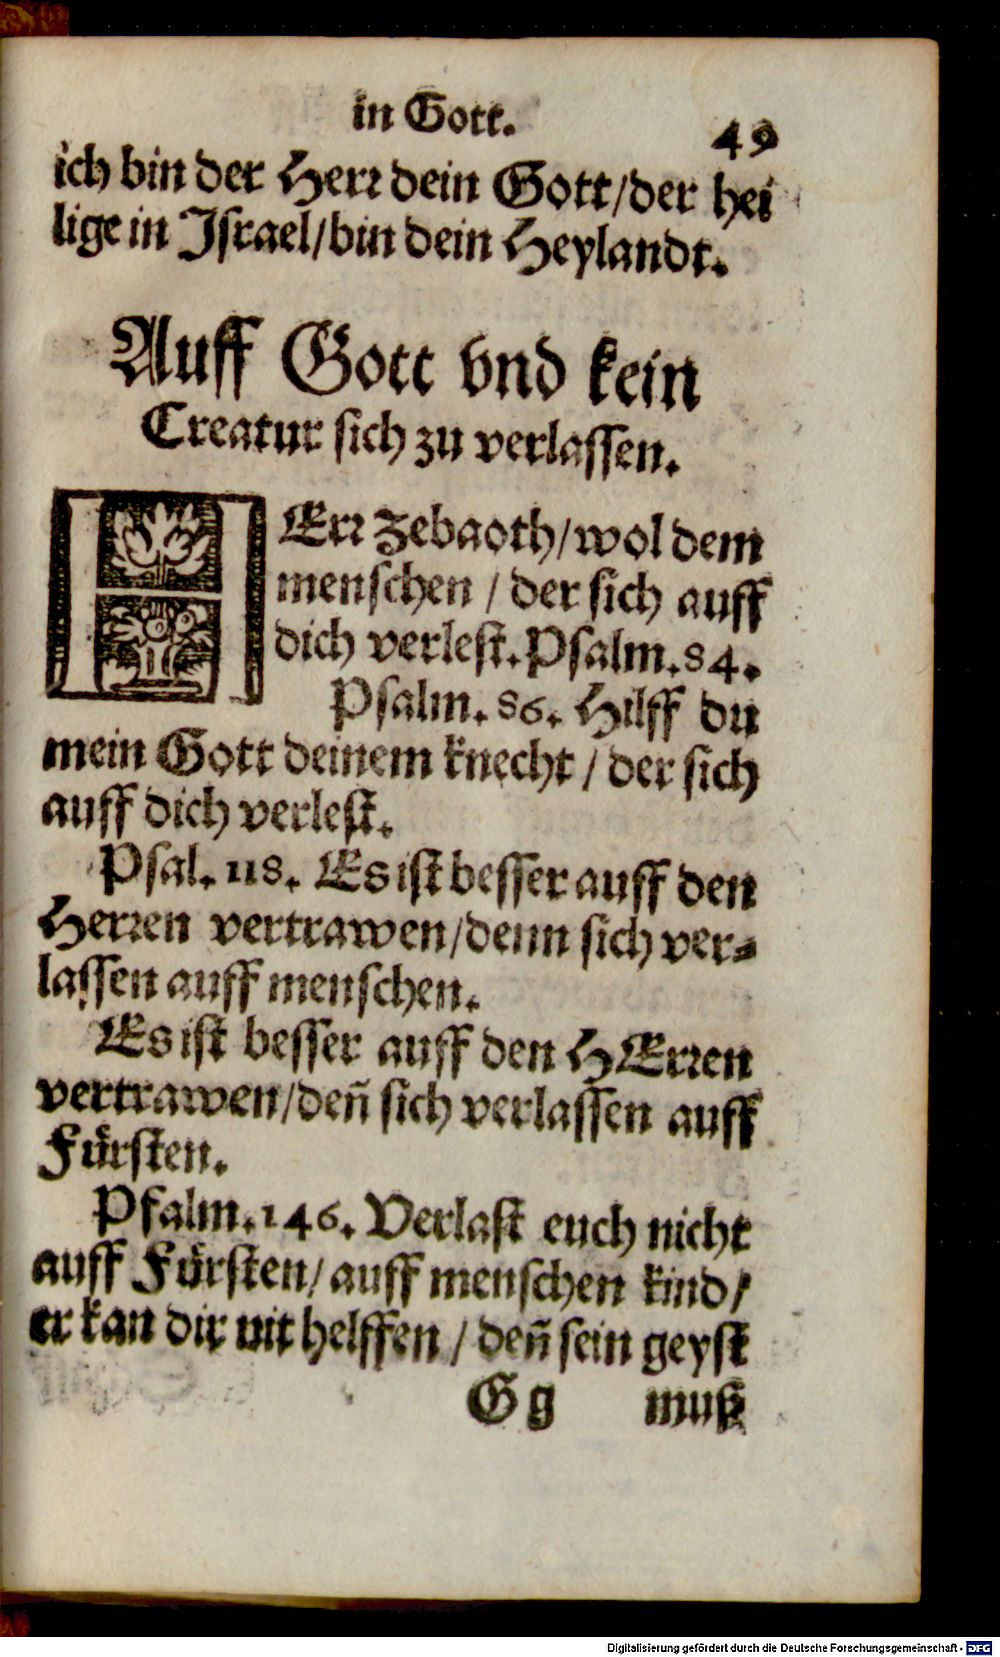 in Gott.
49
ich bin der Herr dein Gott/der hei
lige in Israel/bin dein Heylandt.
Auff Gott vnd kein
Creatur sich zu verlassen.
HErr Zebaoth/wol dem
menschen / der sich auff
dich verlest. Psalm. 84.
Psalm. 86. Hilff du
mein Gott deinem knecht / der sich
auff dich verlest.
Psal. 118. Es ist besser auff den
Herren vertrawen/denn sich ver-
lassen auff menschen.
Es ist besser auff den HErren
vertrawen/deñ sich verlassen auff
Fürsten.
Psalm. 146. Verlast euch nicht
auff Fürsten/ auff menschen kind/
er kan dir nit helffen / deñ sein geyst
G g muß
Digitalisierung gefördert durch die Deutsche Forschungsgemeinschaft - DFG